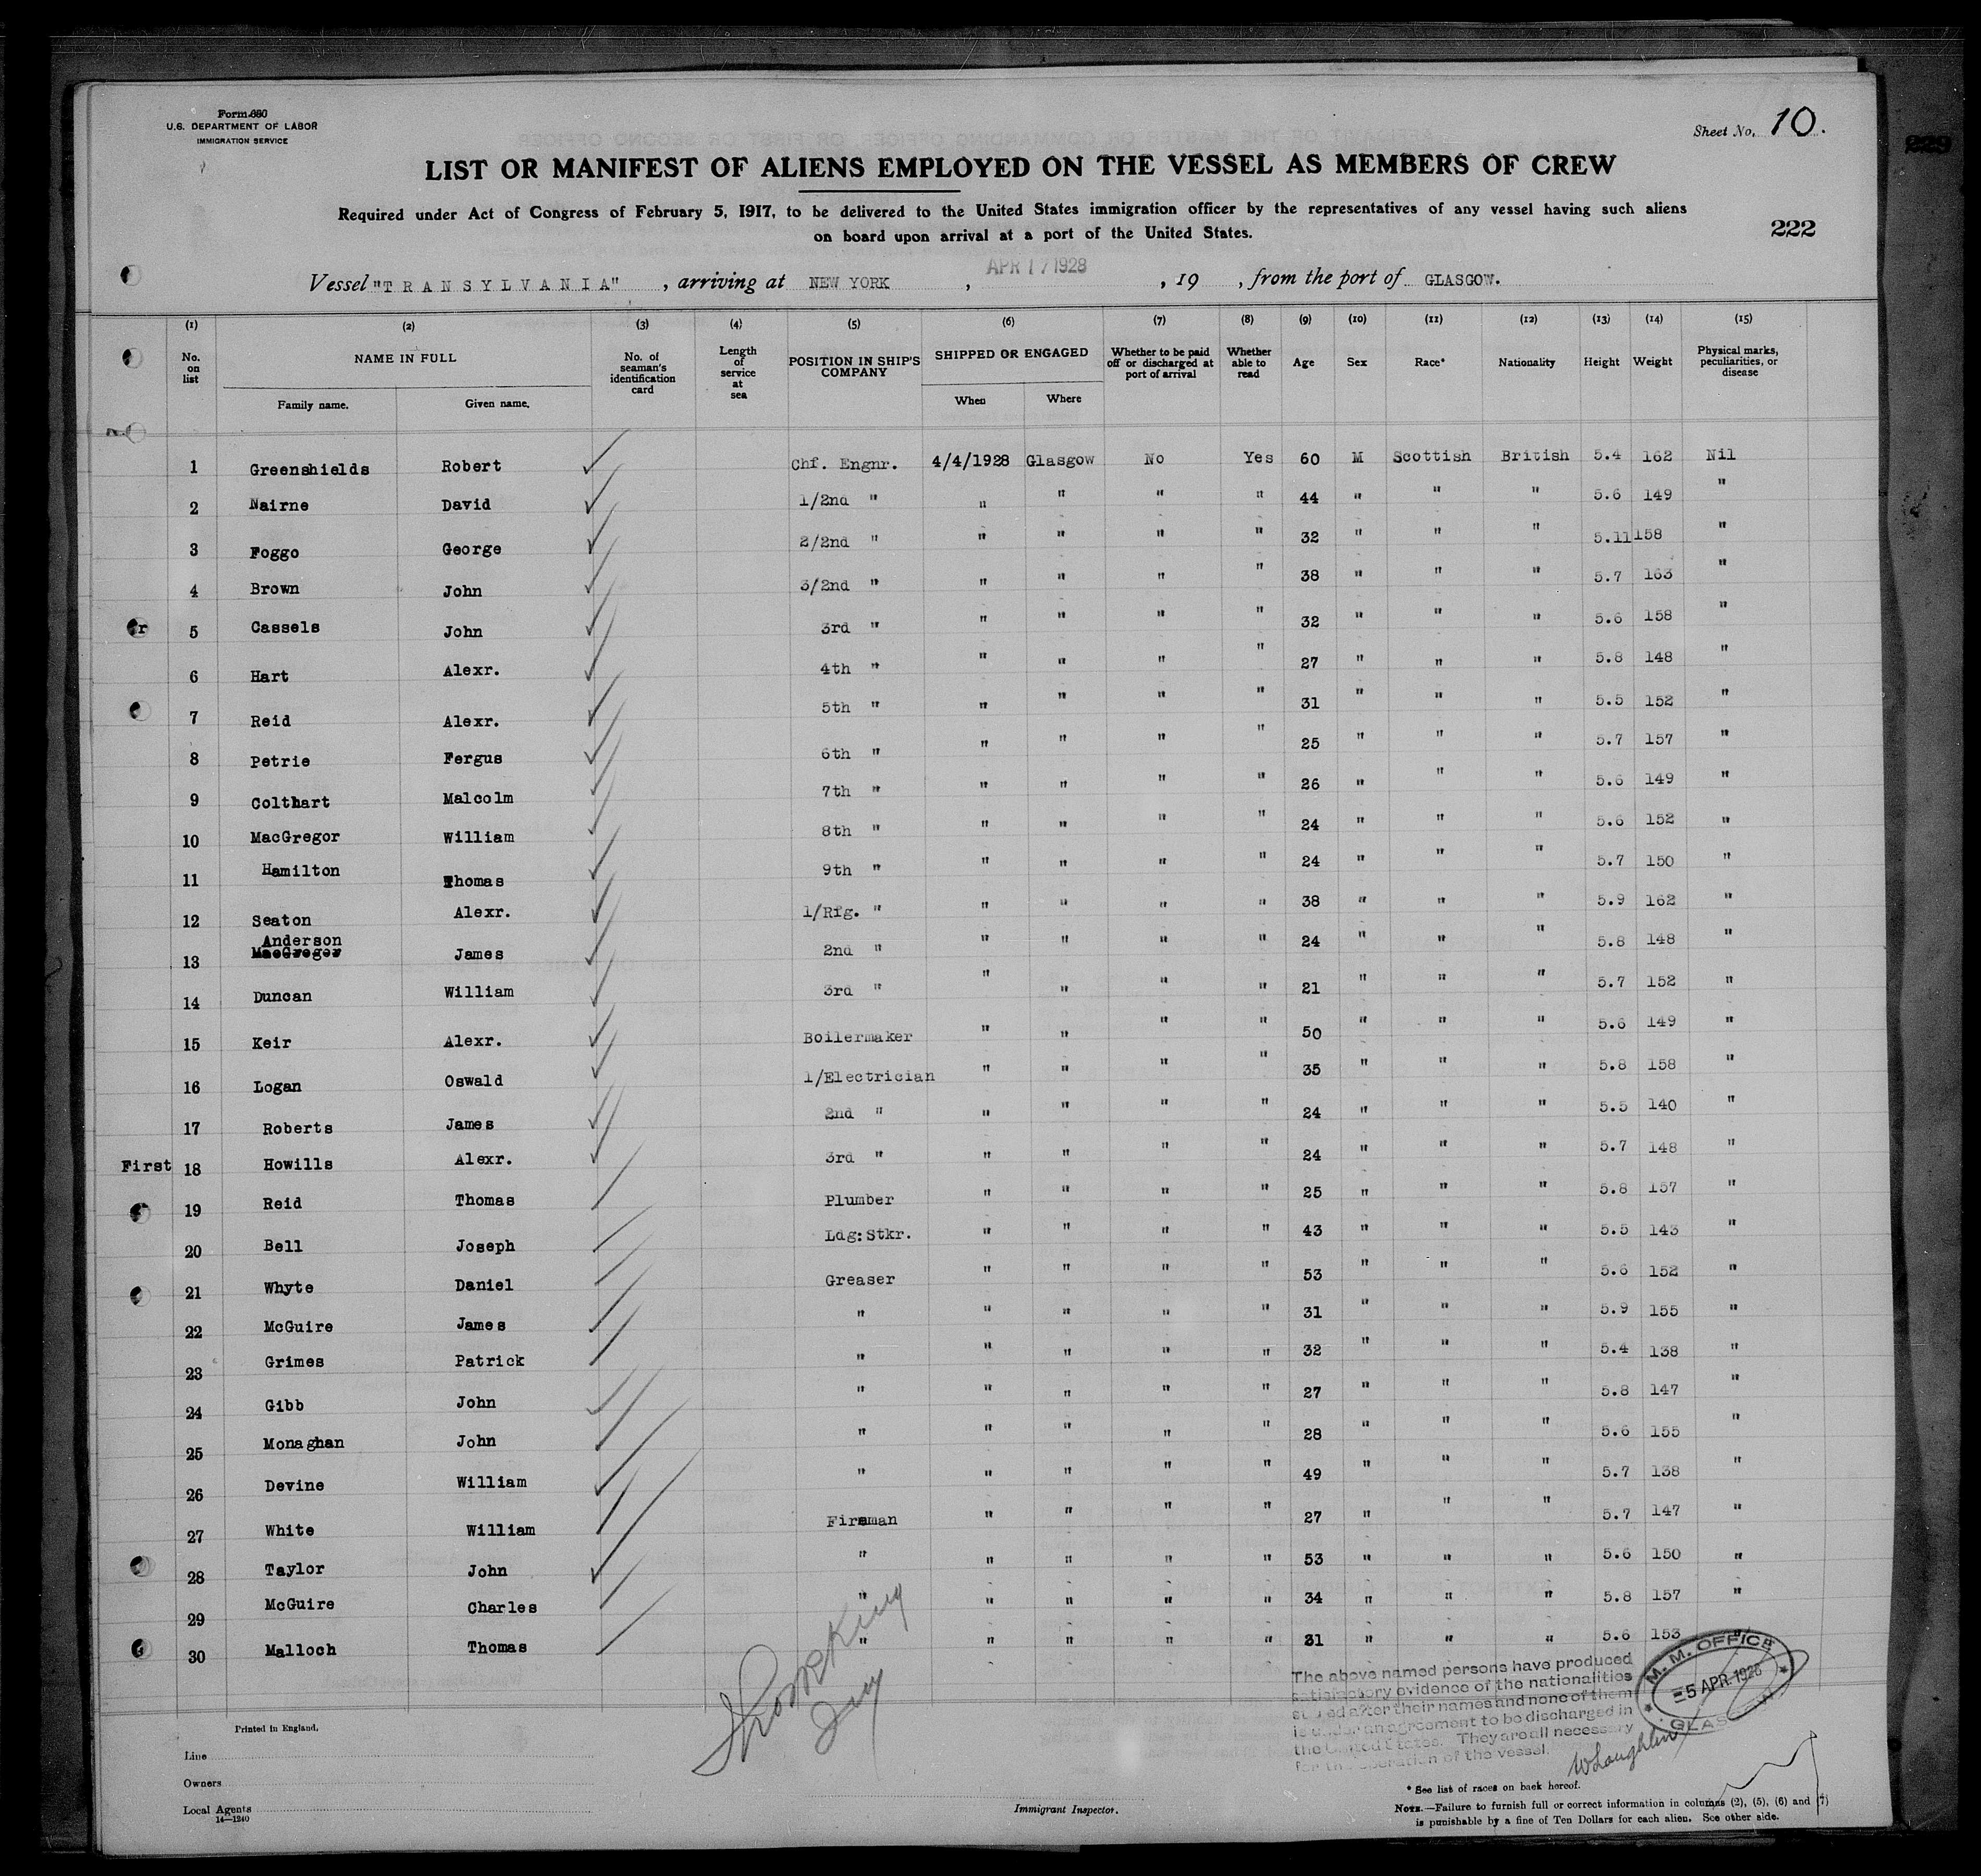 Form 680
U.S. DEPARTMENT OF LABOR
IMMIGRATION SERVICE
Sheet No. 10.
229
LIST OR MANIFEST OF ALIENS EMPLOYED ON THE VESSEL AS MEMBERS OF CREW
Required under Act of Congress of February 5, 1917, to be delivered to the United States immigration officer by the representatives of any vessel having such aliens
on board upon arrival at a port of the United States.
222
APR 17 1928
Vessel "TRANSYLVANIA" , arriving at NEW YORK , , 19 , from the port of GLASGOW.
(1) (2) (3) (4) (5) (6) (7) (8) (9) (10) (11) (12) (13) (14) (15)
No. on list NAME IN FULL Family name. Given name. No. of seaman's identification card Length of service at sea POSITION IN SHIP'S COMPANY SHIPPED OR ENGAGED When Where Whether to be paid off or discharged at port of arrival Whether able to read Age Sex Race* Nationality Height Weight Physical marks, peculiarities, or disease
1 Greenshields Robert Chf. Engnr. 4/4/1928 Glasgow No Yes 60 M Scottish British 5.4 162 Nil
2 Nairne David 1/2nd " " " " " 44 " " " 5.6 149 "
3 Foggo George 2/2nd " " " " " 32 " " " 5.11 158 "
4 Brown John 3/2nd " " " " " 38 " " " 5.7 163 "
5 Cassels John 3rd " " " " " 32 " " " 5.6 158 "
6 Hart Alexr. 4th " " " " " 27 " " " 5.8 148 "
7 Reid Alexr. 5th " " " " " 31 " " " 5.5 152 "
8 Petrie Fergus 6th " " " " " 25 " " " 5.7 157 "
9 Colthart Malcolm 7th " " " " " 26 " " " 5.6 149 "
10 MacGregor William 8th " " " " " 24 " " " 5.6 152 "
11 Hamilton Thomas 9th " " " " " 24 " " " 5.7 150 "
12 Seaton Alexr. 1/Rfg. " " " " " 38 " " " 5.9 162 "
Anderson
13 MacGregor James 2nd " " " " " 24 " " " 5.8 148 "
14 Duncan William 3rd " " " " " 21 " " " 5.7 152 "
15 Keir Alexr. Boilermaker " " " " 50 " " " 5.6 149 "
16 Logan Oswald 1/Electrician " " " " 35 " " " 5.8 158 "
17 Roberts James 2nd " " " " " 24 " " " 5.5 140 "
First 18 Howills Alexr. 3rd " " " " " 24 " " " 5.7 148 "
19 Reid Thomas Plumber " " " " 25 " " " 5.8 157 "
20 Bell Joseph Ldg:Stkr. " " " " 43 " " " 5.5 143 "
21 Whyte Daniel Greaser " " " " 53 " " " 5.6 152 "
22 McGuire James " " " " " 31 " " " 5.9 155 "
23 Grimes Patrick " " " " " 32 " " " 5.4 138 "
24 Gibb John " " " " " 27 " " " 5.8 147 "
25 Monaghan John " " " " " 28 " " " 5.6 155 "
26 Devine William " " " " " 49 " " " 5.7 138 "
27 White William Fireman " " " " 27 " " " 5.7 147 "
28 Taylor John " " " " " 53 " " " 5.6 150 "
29 McGuire Charles " " " " " 34 " " " 5.8 157 "
30 Malloch Thomas " " " " " 31 " " " 5.6 153 "
The above named persons have produced
satisfactory evidence of the nationalities
stated after their names and none of them
is under an agreement to be discharged in
the United States. They are all necessary
for the operation of the vessel.
M. M. OFFICE
5 APR 1928
GLASGOW
WLaughlin
Printed in England.
Line
Owners
Local Agents
14—1240
Immigrant Inspector.
* See list of races on back hereof.
NOTE.—Failure to furnish full or correct information in columns (2), (5), (6) and (7)
is punishable by a fine of Ten Dollars for each alien. See other side.